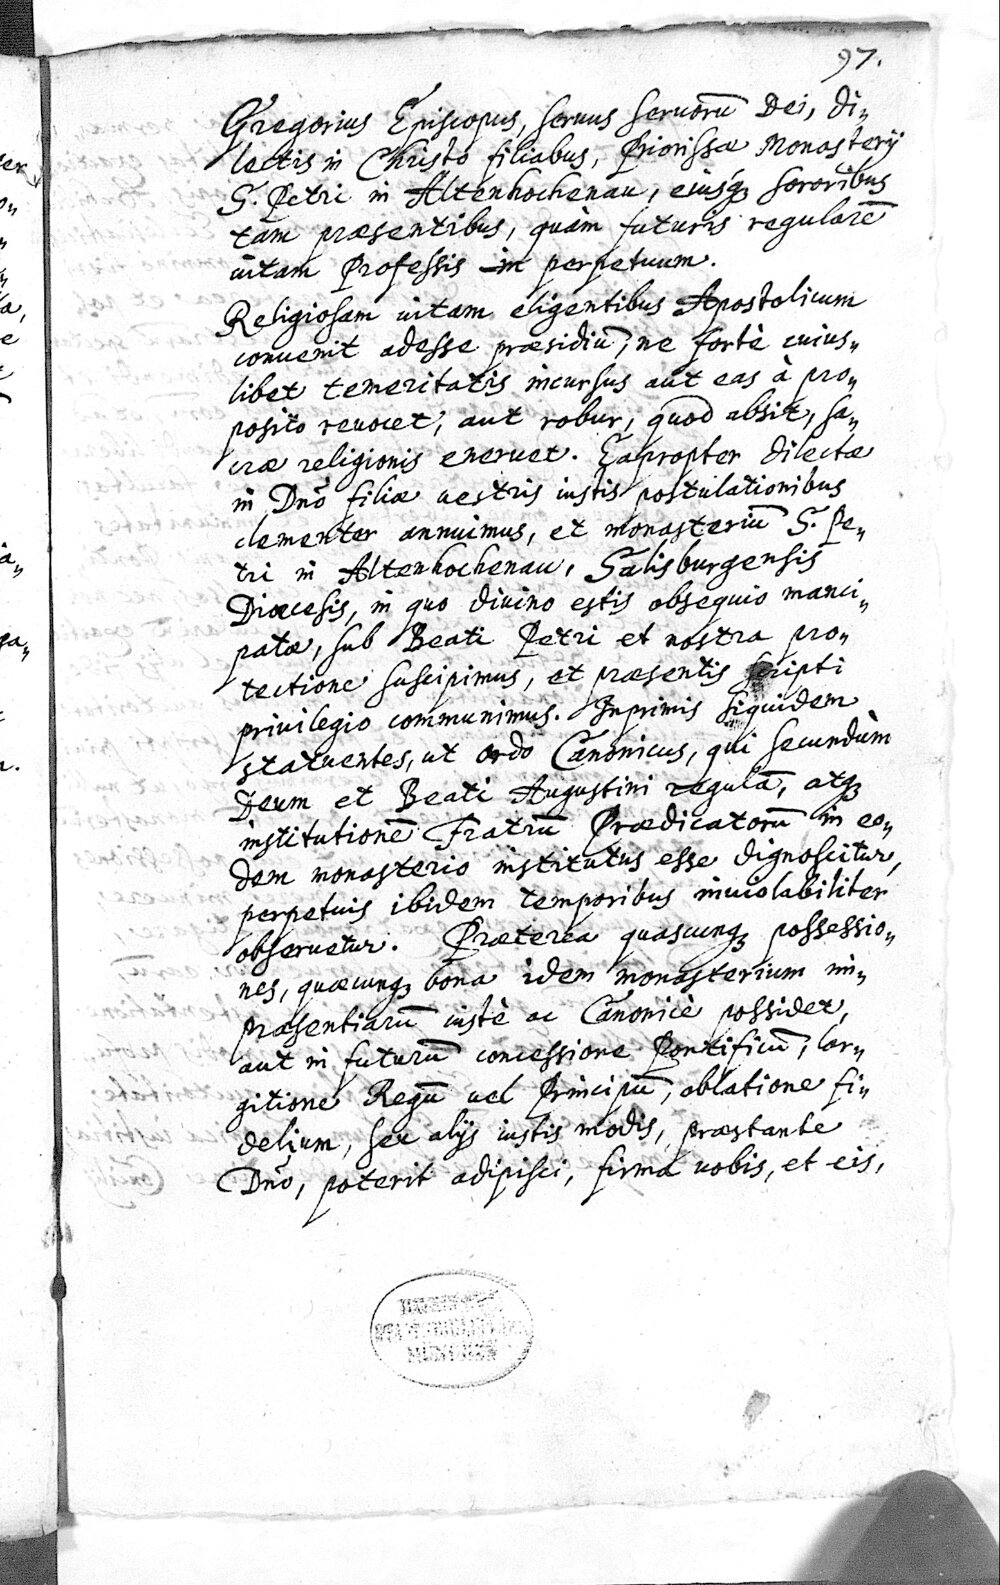 97.
Gregorius Episcopus, seruus seruorū Dei, di„
lectis in Christo filiabus, Priorissæ Monasterij
S. Petri in Altenhochenau, eiusq3 sororibus
tam præsentibus, quàm futuris regularē
uitam professis in perpetuum.
Religiosam uitam eligentibus Apostolicum
conuenit adesse præsidiū, ne fortè cuius„
libet temeritatis incursus aut eas à pro„
posito reuocet, aut robur, quod absit, sa„
cræ religionis eneruet. Eapropter dilectæ
in Dnō filiæ uestris iustis postulationibus
clementer annuimus, et monasteriū S. Pe„
tri in Altenhochenau, Salisburgensis
Diœcesis, in quo diuino estis obsequio manci„
patæ, sub Beati Petri et nostra pro„
tectione suscipimus, et præsentis scripti
priuilegio communimus. Inprimis siquidem
statuentes, ut ordo Canonicus, qui secundùm
Deum et Beati Augustini regulā, atq3
institutionē Fratrū Prædicatorū in eo„
dem monasterio institutus esse dignoscitur,
perpetuis ibidem temporibus inuiolabiliter
obseruetur. Præterea quascunq3 possessio„
nes, quæcunq3 bona idem monasterium im„
præsentiarū iustè ac Canonicè possidet,
aut in futurū concessione Pontificū, lar„
gitione Regū uel Principū, oblatione fi„
delium, seu alijs iustis modis, præstante
Dnō, poterit adipisci, firma uobis, et eis,
MÜNCHEN